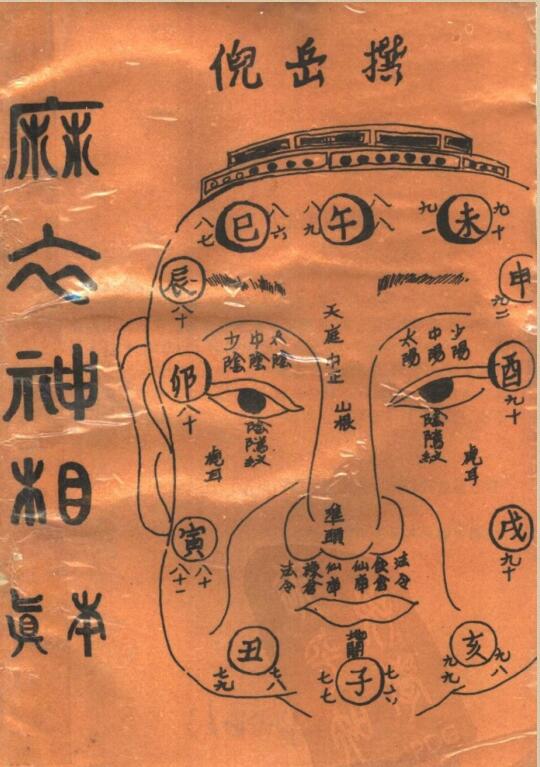 倪岳撰
麻衣神相
眞本
八七
巳
八六
八九
午
八八
九一
未
九十
辰
八十
申
九二
天庭
中正
山根
少陰
中陰
太陰
太陽
中陽
少陽
卯
八十
酉
九十
陰陽紋
陰陽紋
虎耳
虎耳
準頭
寅
八十
八十一
戌
九十
法令
仙庫
仙庫
法令
丑
七九
七八
地閣
子
七七
七六
亥
九九
九八